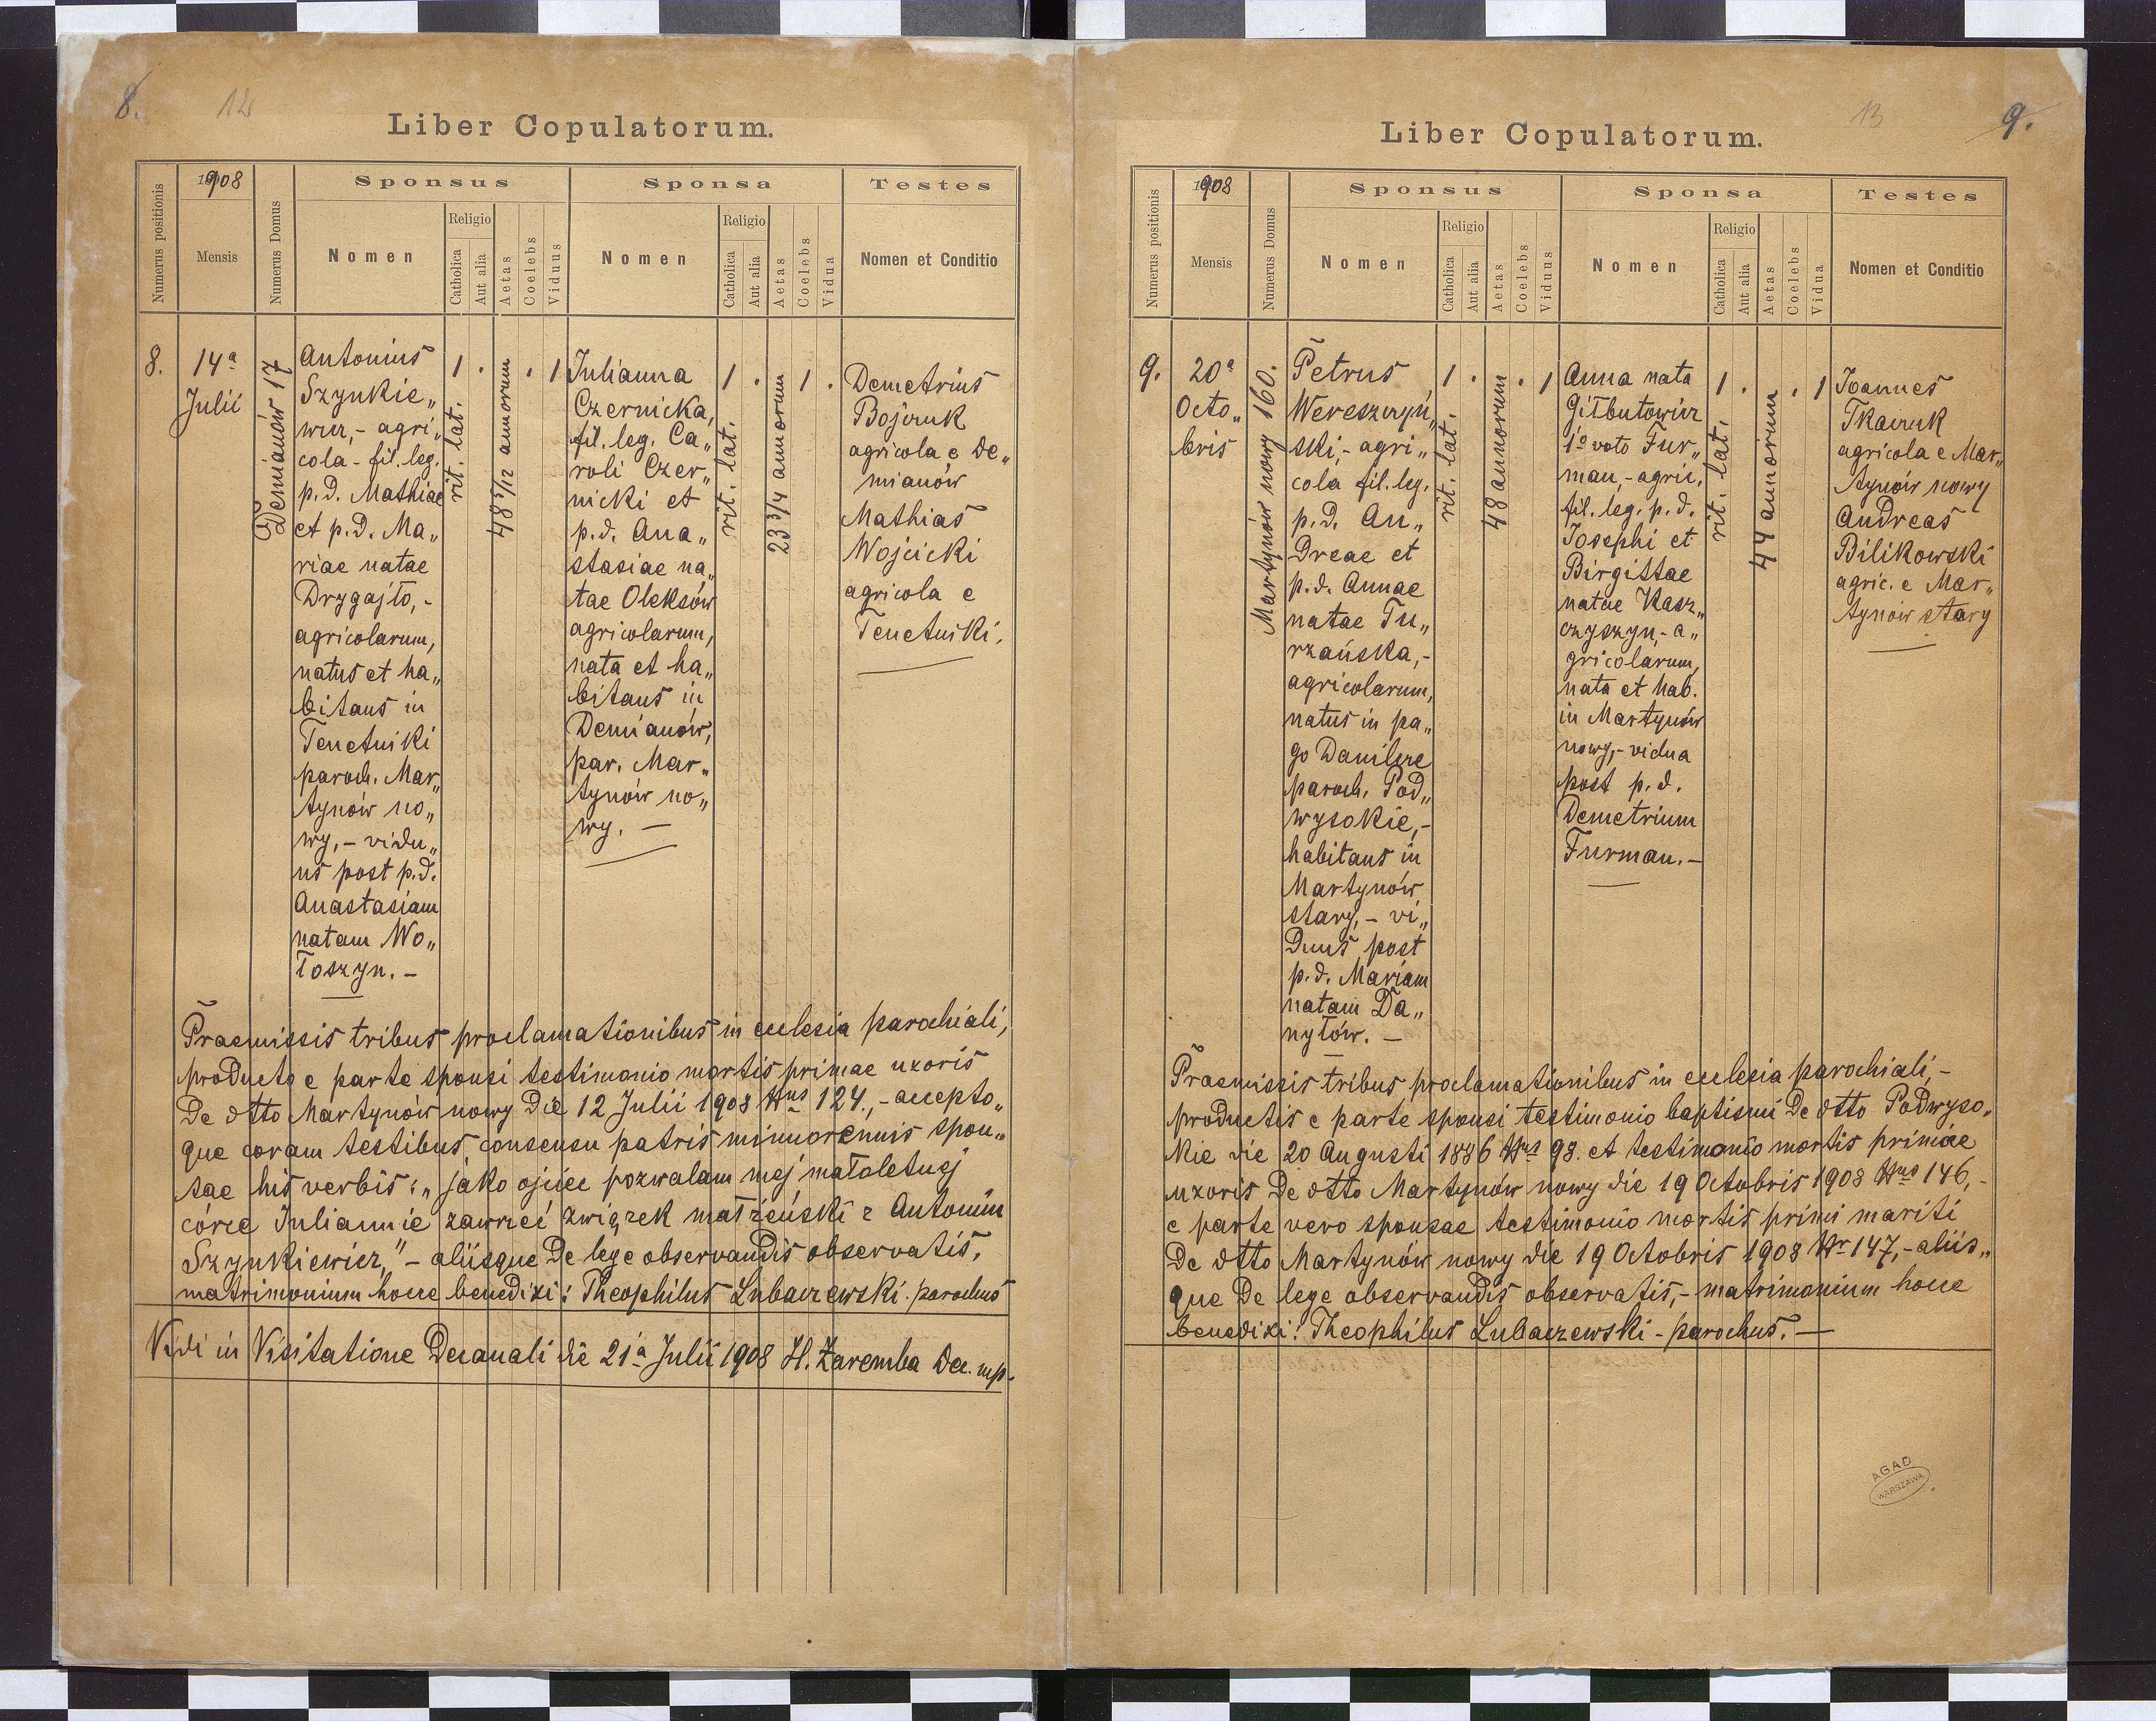 8.
12
Liber Copulatorum.
Numerus positionis
1908
Mensis
Numerus Domus
Sponsus
Nomen
Religio
Catholica
Aut alia
Aetas
Coelebs
Viduus
Sponsa
Nomen
Religio
Catholica
Aut alia
Aetas
Coelebs
Vidua
Testes
Nomen et Conditio
8.
14ª
Julii
Demianów 17
Antonius
Szynkie„
wicz,- agri„
cola - fil. leg.
p.d. Mathiae
et p.d. Ma„
riae natae
Drygajło,-
agricolarum,
natus et ha„
bitans in
Tenetniki
paroch. Mar„
tynów no„
wy,- vidu„
us post p.d.
Anastasiam
natam Wo„
łoszyn. -
1
rit. lat.
.
48 5/12 annorum
.
1
Julianna
Czernicka,
fil. leg. Ca„
roli Czer„
nicki et
p.d. Ana„
stasiae na„
tae Oleksów
agricolarum,
nata et ha„
bitans in
Demianów,
par. Mar„
tynów no„
wy. -
1
rit. lat.
.
23 3/4 annorum
1
.
Demetrius
Bojczuk
agricola e De„
mianów
Mathias
Wojcicki
agricola e
Tenetniki.
Praemissis tribus proclamationibus in ecclesia parochiali,
producto e parte sponsi testimonio mortis primae uxoris
de dtto Martynów nowy die 12 Julii 1908 Nrus 124.,- accepto„
que coram testibus consensu patris minorennis spon„
sae his verbis: „jako ojciec pozwalam mej małoletniej
córce Juliannie zawrzeć związek małżeński z Antonim
Szynkiewicz,"- aliisque de lege observandis observatis,
matrimonium hocce benedixi: Theophilus Lubaczewski. parochus
Vidi in Visitatione Decanali die 21ª Julii 1908 H. Zaremba Dec. mp.
13
9.
Liber Copulatorum.
Numerus positionis
1908
Mensis
Numerus Domus
Sponsus
Nomen
Religio
Catholica
Aut alia
Aetas
Coelebs
Viduus
Sponsa
Nomen
Religio
Catholica
Aut alia
Aetas
Coelebs
Vidua
Testes
Nomen et Conditio
9.
20ª
Octo„
bris
Martynów nowy 160.
Petrus
Wereszczyń„
ski,- agri„
cola fil. leg.
p.d. An„
dreae et
p.d. Annae
natae Tu„
rzańska,-
agricolarum,
natus in pa„
go Danilcze
paroch. Pod„
wysokie,-
habitans in
Martynów
stary,- vi„
duus post
p.d. Mariam
natam Da„
nyłów. -
1
rit. lat.
.
48 annorum
.
1
Anna nata
Giłbutowicz
1º voto Fur„
man,- agric.
fil. leg. p.d.
Josephi et
Birgittae
natae Kasz„
czyszyn,- a„
gricolarum,
nata et hab.
in Martynów
nowy,- vidua
post p.d.
Demetrium
Furman.-
1
rit. lat.
.
44 annorum
.
1
Joannes
Tkaczuk
agricola e Mar„
tynów nowy
Andreas
Bilikowski
agric. e Mar„
tynów stary
Praemissis tribus proclamationibus in ecclesia parochiali,-
productis e parte sponsi testimonio baptismi de dtto Podwyso„
kie die 20 Augusti 1886 Nrus 98. et testimonio mortis primae
uxoris de dtto Martynów nowy die 19 Octobris 1908 Nrus 146,-
e parte vero sponsae testimonio mortis primi mariti
de dtto Martynów nowy die 19 Octobris 1908 Nr 147,- aliis„
que de lege observandis observatis,- matrimonium hocce
benedixi! Theophilus Lubaczewski - parochus. -
AGAD
WARSZAWA